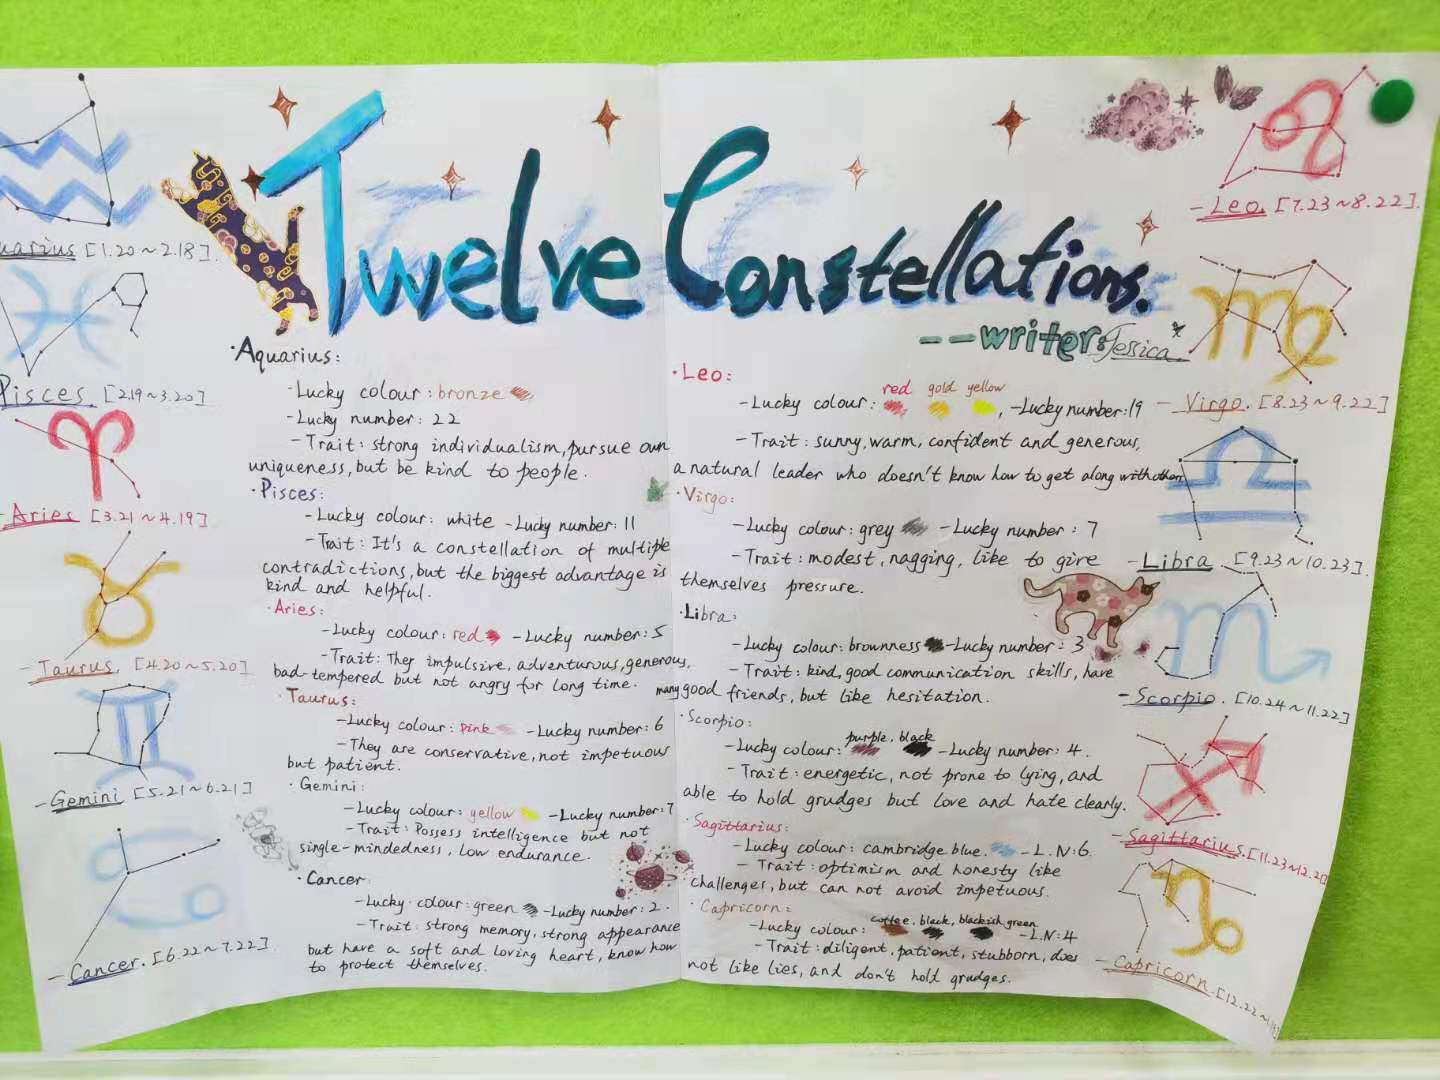 Twelve Constellations.
--writer: Jessica
uarius [1.20~2.18].
Pisces. [2.19~3.20]
-Aries [3.21~4.19].
-Taurus. [4.20~5.20]
-Gemini [5.21~6.21]
-Cancer. [6.22~7.22]
·Aquarius:
-Lucky colour: bronze
-Lucky number: 22
-Trait: strong individualism, pursue own
uniqueness, but be kind to people.
·Pisces:
-Lucky colour: white -Lucky number: 11
-Trait: It's a constellation of multiple
contradictions, but the biggest advantage is
kind and helpful.
·Aries:
-Lucky colour: red -Lucky number: 5
-Trait: They impulsive, adventurous, generous,
bad-tempered but not angry for long time.
·Taurus:
-Lucky colour: pink -Lucky number: 6
-They are conservative, not impetuous
but patient.
·Gemini:
-Lucky colour: yellow -Lucky number: 7
-Trait: Possess intelligence but not
single-mindedness, low endurance.
·Cancer
-Lucky colour: green -Lucky number: 2.
-Trait: strong memory, strong appearance
but have a soft and loving heart, know how
to protect themselves.
·Leo:
red gold yellow
-Lucky colour: , -Lucky number: 19
-Trait: sunny, warm, confident and generous,
a natural leader who doesn't know how to get along with others
·Virgo:
-Lucky colour: grey -Lucky number: 7
-Trait: modest, nagging, like to give
themselves pressure.
·Libra:
-Lucky colour: brownness -Lucky number: 3
-Trait: kind, good communication skills, have
many good friends, but like hesitation.
·Scorpio:
purple, black
-Lucky colour: -Lucky number: 4.
-Trait: energetic, not prone to lying, and
able to hold grudges but love and hate clearly.
·Sagittarius:
-Lucky colour: cambridge blue. -L.N: 6.
-Trait: optimism and honesty like
challenges, but can not avoid impetuous.
·Capricorn:
coffee, black, blackish green
-Lucky colour: -L.N: 4
-Trait: diligent, patient, stubborn, does
not like lies, and don't hold grudges.
-Leo. [7.23~8.22].
-Virgo. [8.23~9.22]
-Libra [9.23~10.23].
-Scorpio. [10.24~11.22]
-Sagittarius. [11.23~12.20]
-Capricorn. [12.22~